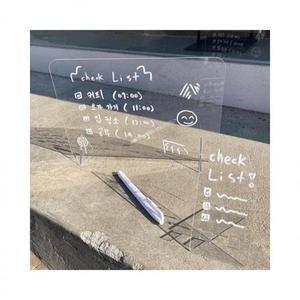 check List
커피 (09:00)
요가 가기 (11:00)
집 청소 (17:00)
공부 (19:00)
check
List!